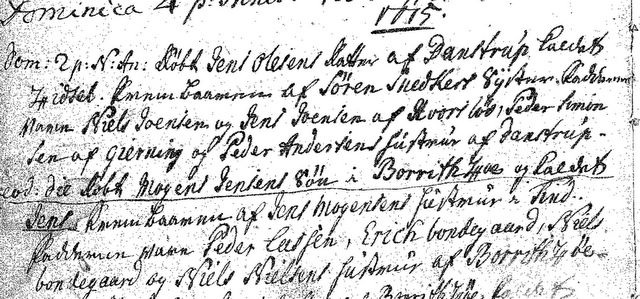 Dominica 4 p:
1715.
Dom: 2 p: N: An: Købt Jens Olesens Datter af Danstrup kaldet
Zidsel. frembaaren af Søren Snedkers Syster. Fadderne
vare Niels Joensen og Jens Joensen af Kvorsløs, Peder Simon
sen af Gierning og Peder Andersens Hustrue af Danstrup.
eod: die Købt Mogens Jensens Søn i Borrith Høe og kaldet
Jens. frembaaren af Jens Mogensens Hustrue i Lind.
Fadderne vare Peder Lassen, Erich bondegaard, Niels
bondegaard og Niels Nielsens Hustrue af Borrith Høe.